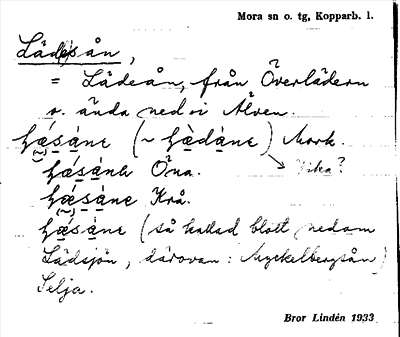 Mora sn o. tg, Kopparb. l.
Lädesån,
= Lädeån, från Överlädern
o. ända ned i Älven.
hǽsáne (~ hædàne) Mork.
Vika?
hǽsánɩ Öna.
hǽsáne Krå.
hǽsáne (så kallad blott nedom
Lädsjön, därovan: Myckelbergsån)
Selja.
Bror Lindén 1933